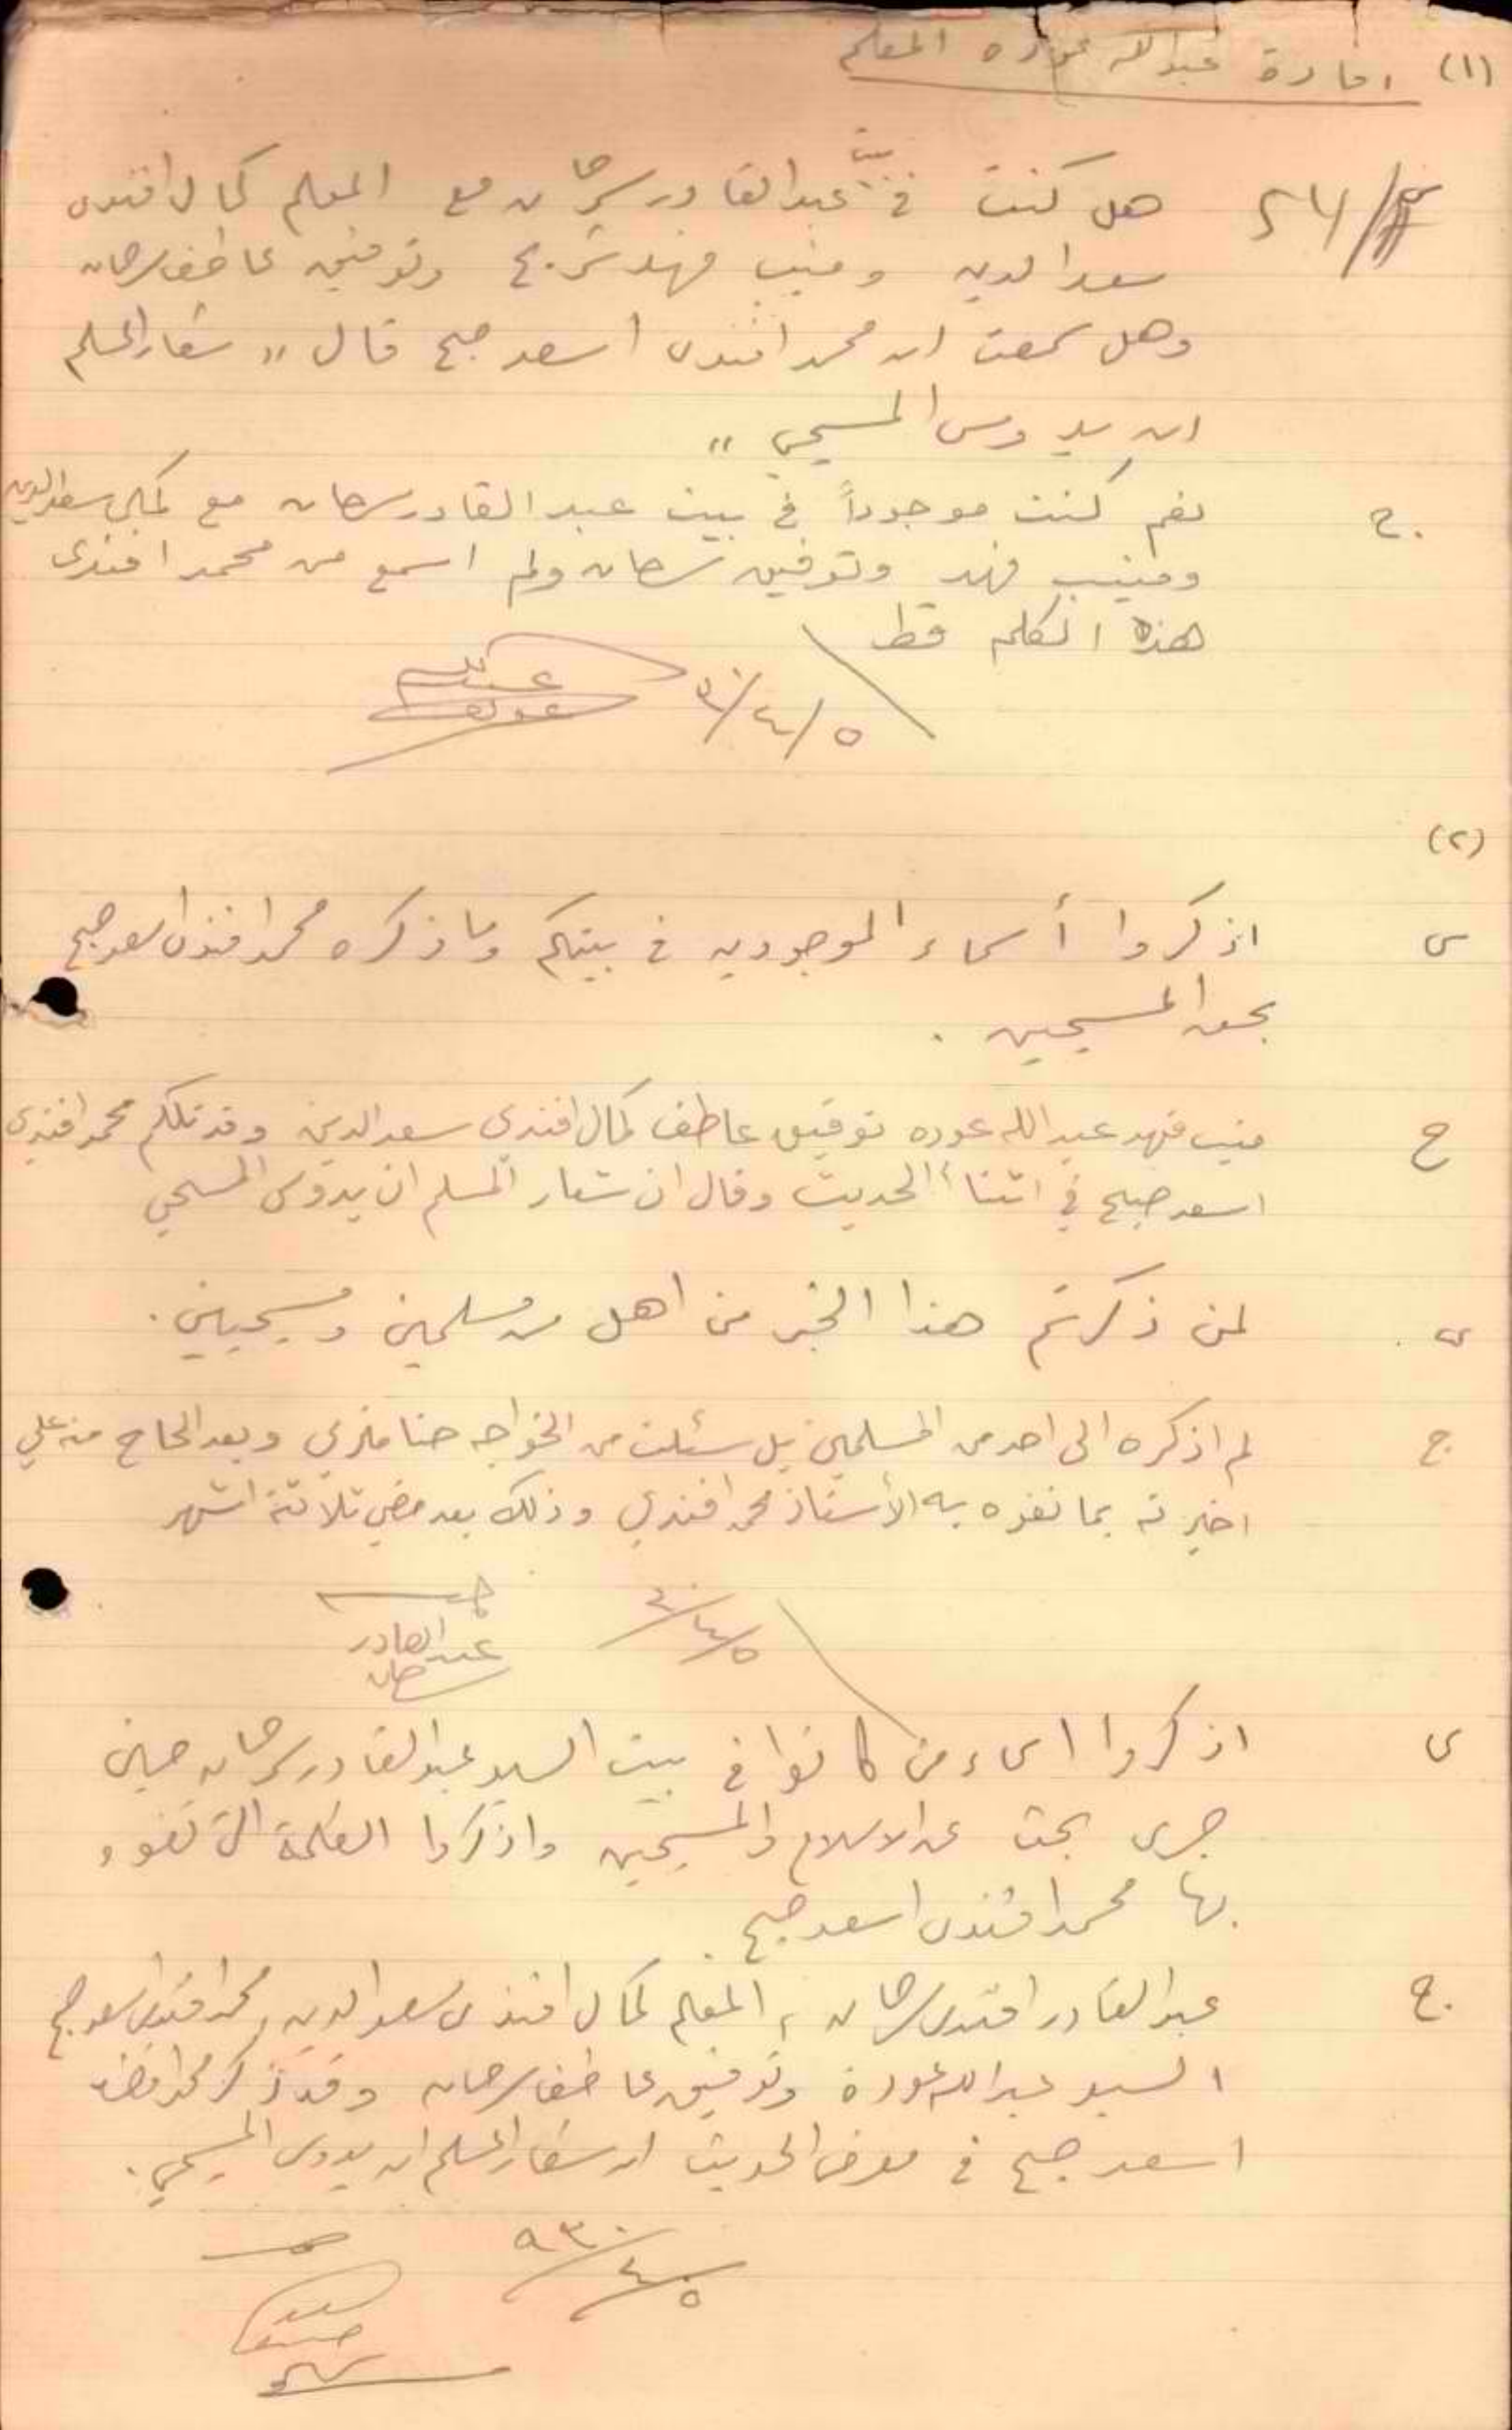 (١) افادة عبدالله عوده المعلم
س هل كنت في بيت عبدالقادر سرحان مع المعلم كمال افندي
سعد الدين ومنيب فهد وتوفيق عاطف سرحان
وهل سمعت ان محمد افندي اسعد صبح قال " شعار المسلم
ان يدوس المسيحي "
ج. نعم كنت موجوداً في بيت عبد القادر سرحان مع كمال سعد الدين
ومنيب فهد وتوفيق سرحان ولم اسمع من محمد افندي
هذه الكلمه قط
٥/٤/٣٠ عبدالله عوده
(٢)
س اذكروا أسماء الموجودين في بيتكم وما ذكره محمد افندي اسعد صبح
بحق المسيحيين .
ج منيب فهد عبد الله عوده توفيق عاطف كمال افندي سعد الدين وقد تكلم محمد افندي
اسعد صبح في اثناء الحديث وقال ان شعار المسلم ان يدوس المسيحي
س لمن ذكرتم هذا الخبر من اهل من مسلمين ومسيحيين .
ج لم اذكره الى احد من المسلمين بل سئلت من الخواجه حنا وبعد الحاح منه علي
اخبرته بما تفوه به الأستاذ محمد افندي وذلك بعد مضي ثلاثة اشهر
٥/٤/٣٠ عبد القادر سرحان
س اذكروا اسماء من كانوا في بيت السيد عبد القادر سرحان حين
جرى بحث عن الاسلام والمسيحيين واذكروا الكلمة التي تفوه
بها محمد افندي اسعد صبح .
ج. عبد القادر افندي سرحان ، المعلم كمال افندي سعد الدين ، محمد افندي اسعد صبح
السيد عبد الله عودة وتوفيق عاطف سرحان وقد ذكر محمد افندي
اسعد صبح في معرض الحديث ان شعار المسلم ان يدوس المسيحي .
٥/٤/٩٣٠